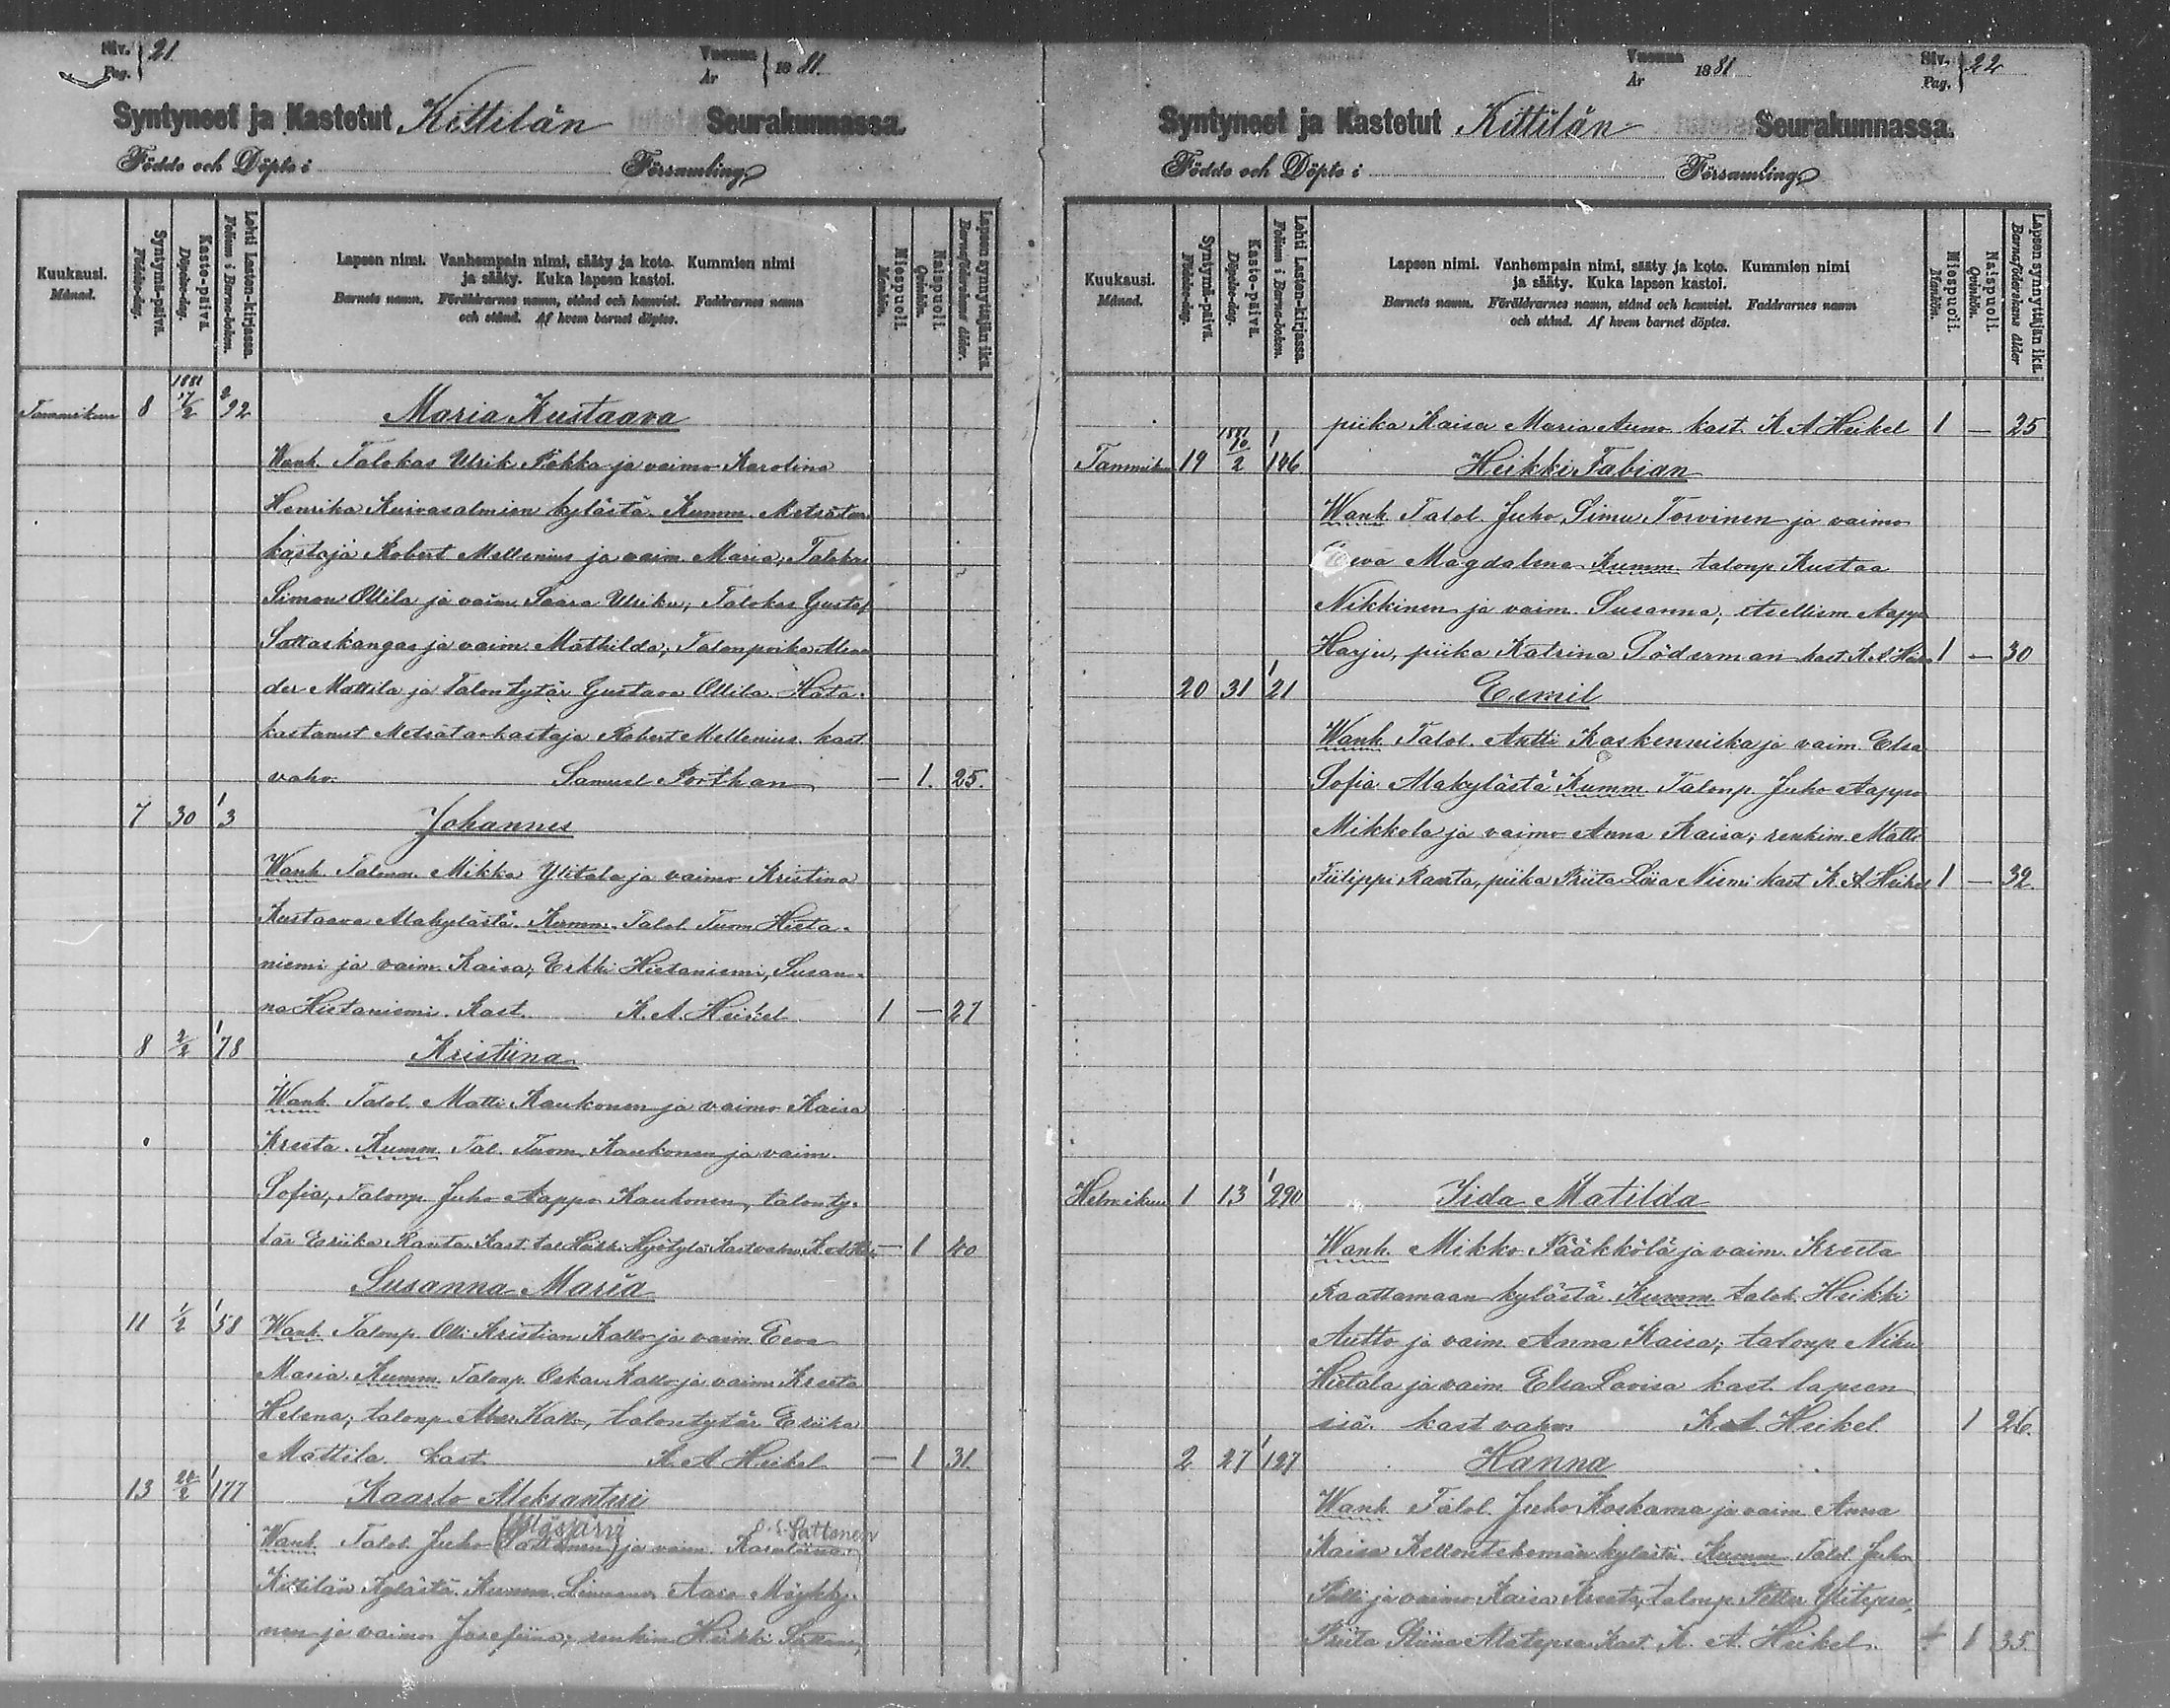 Siv. Pag. 21
Vuonna År 1881.
Syntyneet ja Kastetut Kittilän Seurakunnassa.
Födde och Döpte i Församling
Kuukausi. Månad.
Syntymä-päivä. Födelse-dag.
Kaste-päivä. Döpelse-dag.
Lehti Lasten-kirjassa. Folium i Barna-boken.
Lapsen nimi. Vanhempain nimi, sääty ja koto. Kummien nimi
ja sääty. Kuka lapsen kastoi.
Barnets namn. Föräldrarnes namn, stånd och hemvist. Faddrarnes namn
och stånd. Af hvem barnet döptes.
Miespuoli. Mankön.
Naispuoli. Qvinkön.
Lapsen synnyttäjän ikä. Barnaföderskans ålder.
Tammikuu 8 1881 17/2 2 92 Maria Kustaava
Wanh. Talokas Ulrik Pokka ja vaimo Karolina
Henrika Kuivasalmien kylästä. Kumm. Metsätar-
kastaja Robert Mellenius ja vaim. Maria; Talokas
Simon Ollila ja vaim. Saara Ulrika; Talokas Gustaf
Sattaskangas ja vaim. Mathilda; Talonpoika
der Mattila ja Talontytär Gustava Ollila. Hätä-
kastanut Metsätarkastaja Robert Mellenius. kast.
vahv. Samuel Porthan — 1. 25.
7 30 1 3 Johannes
Wanh. Talonm. Mikko Ylitalo ja vaimo Kristina
Kustaava Alakylästä. Kumm. Talol. Tuom Hieta-
niemi ja vaim. Kaisa, Erkki Hietaniemi, Susan-
na Hietaniemi. Kast. K. A. Heikel 1 — 27
8 2/2 1 78 Kristiina
Wanh. Talol. Matti Kaukonen ja vaimo Kaisa
Kreeta. Kumm. Tal. Tuom. Kaukonen ja vaim.
Sofia, Talonp. Juho Aappo Kaukonen, talonty-
tär Eriika Ranta. Kast. tal. Heikk. Hyötylä Kastvahv. K. A. — 1 40
Susanna Maria
11 1/2 1 58 Wanh. Talonp. Olli Kristian Kallo ja vaim. Eeva
Maria. Kumm. Talonp. Oskar Kallo ja vaim Kreeta
Helena; talonp. Kallo, talontytär Eriika
Mattila. kast. K. A Heikel — 1 31.
13 20/2 1 177 Kaarlo Aleksanteri
Wanh. Talol. Juho (Sattanen) ja vaim. Karoliina o. s. Sattanen
Kittilän Kylästä. Kumm. Aaro
nen ja vaimo Josefiina; renkim. Heikki
Vuonna År 1881
Siv. Pag. 22
Syntyneet ja Kastetut Kittilän Seurakunnassa.
Födde och Döpte i Församling
Kuukausi. Månad.
Syntymä-päivä. Födelse-dag.
Kaste-päivä. Döpelse-dag.
Lehti Lasten-kirjassa. Folium i Barna-boken.
Lapsen nimi. Vanhempain nimi, sääty ja koto. Kummien nimi
ja sääty. Kuka lapsen kastoi.
Barnets namn. Föräldrarnes namn, stånd och hemvist. Faddrarnes namn
och stånd. Af hvem barnet döptes.
Miespuoli. Mankön.
Naispuoli. Qvinkön.
Lapsen synnyttäjän ikä. Barnaföderskans ålder
piika Kaisa Maria Auno kast. K A Heikel 1 — 25
Tammikuu 19 1881 10/2 1 146 Heikki Fabian
Wanh. Talol. Juho Simu Torvinen ja vaimo
Eeva Magdalena Kumm. talonp. Kustaa
Nikkinen ja vaim. Susanna; itsellism. Aappo
Harju, piika Katrina Söderman kast. K A 1 — 30
20 31 1 21 Eemil
Wanh. Talol. Antti Koskenniska ja vaim. Elsa
Sofia Alakylästä Kumm. Talonp. Juho Aappo
Mikkola ja vaimo Anna Kaisa; renkim. Matti
Fiilippi Ranta, piika Priita Liisa Niemi kast K. A. Heikel 1 — 32.
Helmikuu 1 13 1 290 Iida Matilda
Wanh. Mikko Pääkkölä ja vaim. Kreeta
Raattamaan kylästä Kumm. talok. Heikki
Autto ja vaim. Anna Kaisa; talonp. Niku
Hietala ja vaim. Elsa Lovisa kast. lapsen
isä. kast vahv. K. A. Heikel. 1 26.
2 27 1 127 Hanna
Wanh. Talol. Juho Koskama ja vaim. Anna
Kaisa Kellontekemän kylästä. Kumm. Talol. Juho
Palli ja vaimo Kaisa Kreeta, talonp. Petter Ylitepsa,
Priita Stiina Alatepsa. Kast. K. A. Heikel. 1 35.